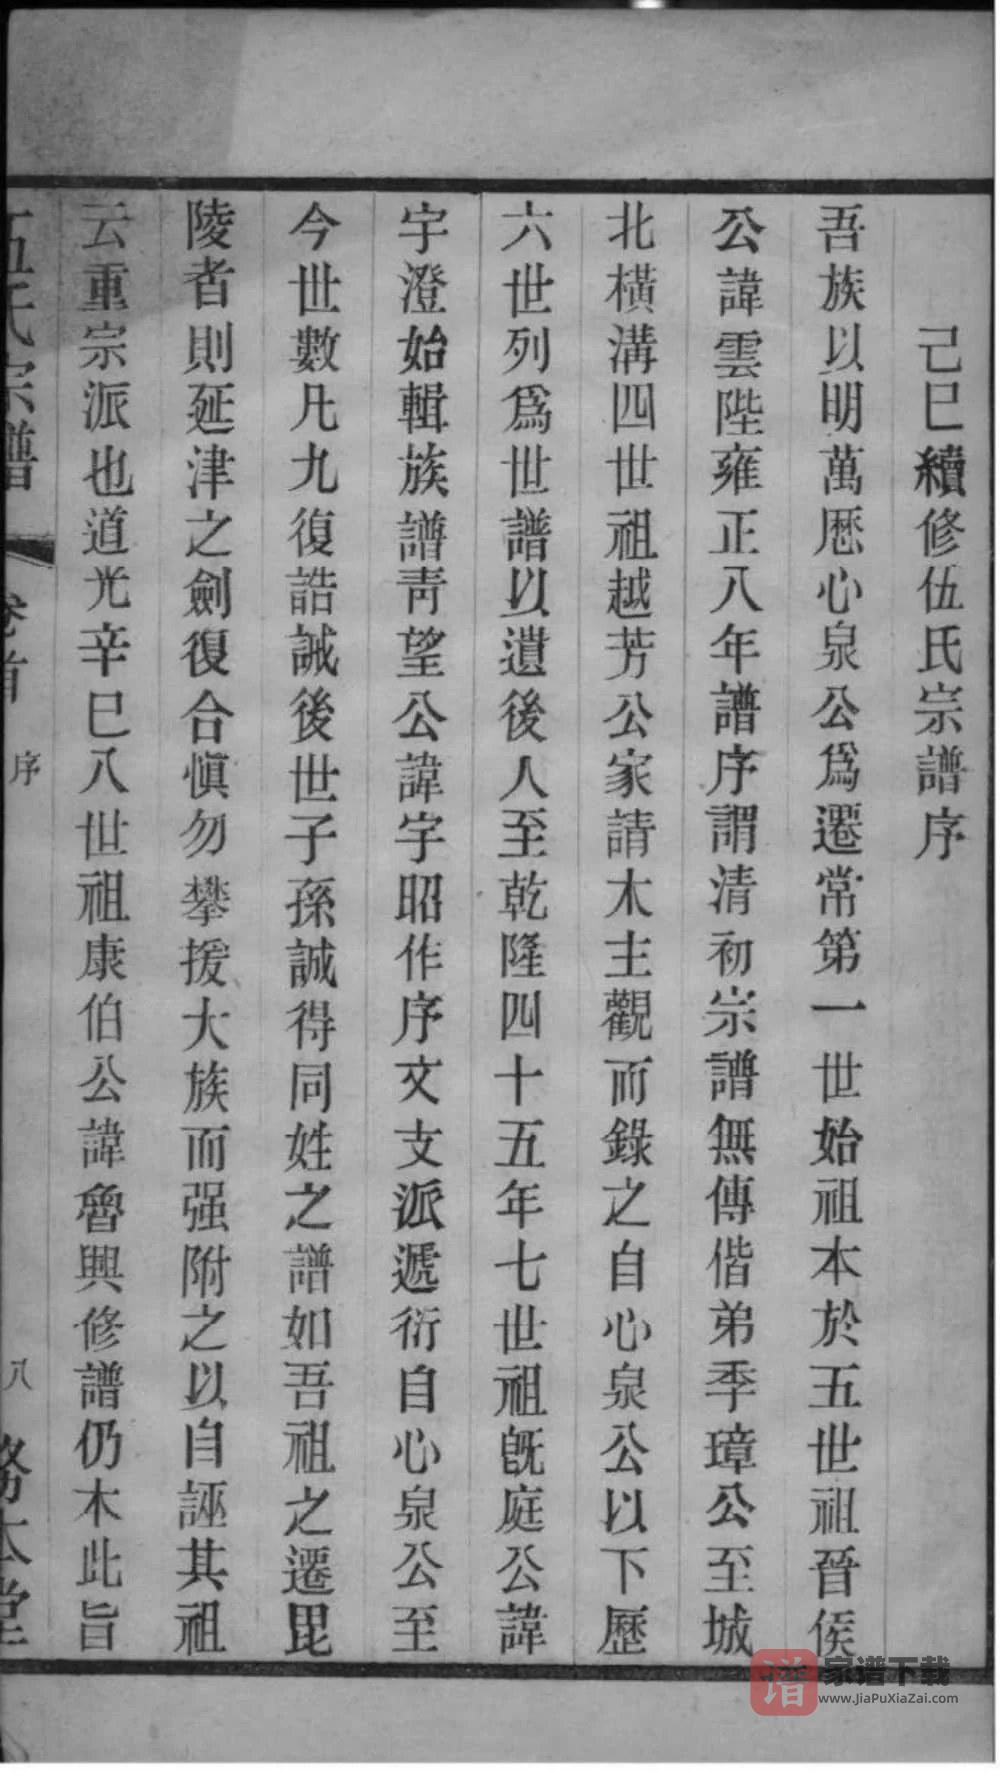 己巳續修伍氏宗譜序
吾族以明萬厯心泉公爲遷常第一世始祖本於五世祖晉侯
公諱雲陛雍正八年譜序謂清初宗譜無傳偕弟季璋公至城
北橫溝四世祖越芳公家請木主觀而錄之自心泉公以下歷
六世列爲世譜以遺後人至乾隆四十五年七世祖旣庭公諱
宇澄始輯族譜靑望公諱宇昭作序文支派遞衍自心泉公至
今世數凡九復誥誡後世子孫誠得同姓之譜如吾祖之遷毘
陵者則延津之劍復合愼勿攀援大族而强附之以自誣其祖
云重宗派也道光辛巳八世祖康伯公諱魯興修譜仍木此旨
伍氏宗譜
卷首
序
八
務本堂
谱
家谱下载
www.JiaPuXiaZai.com